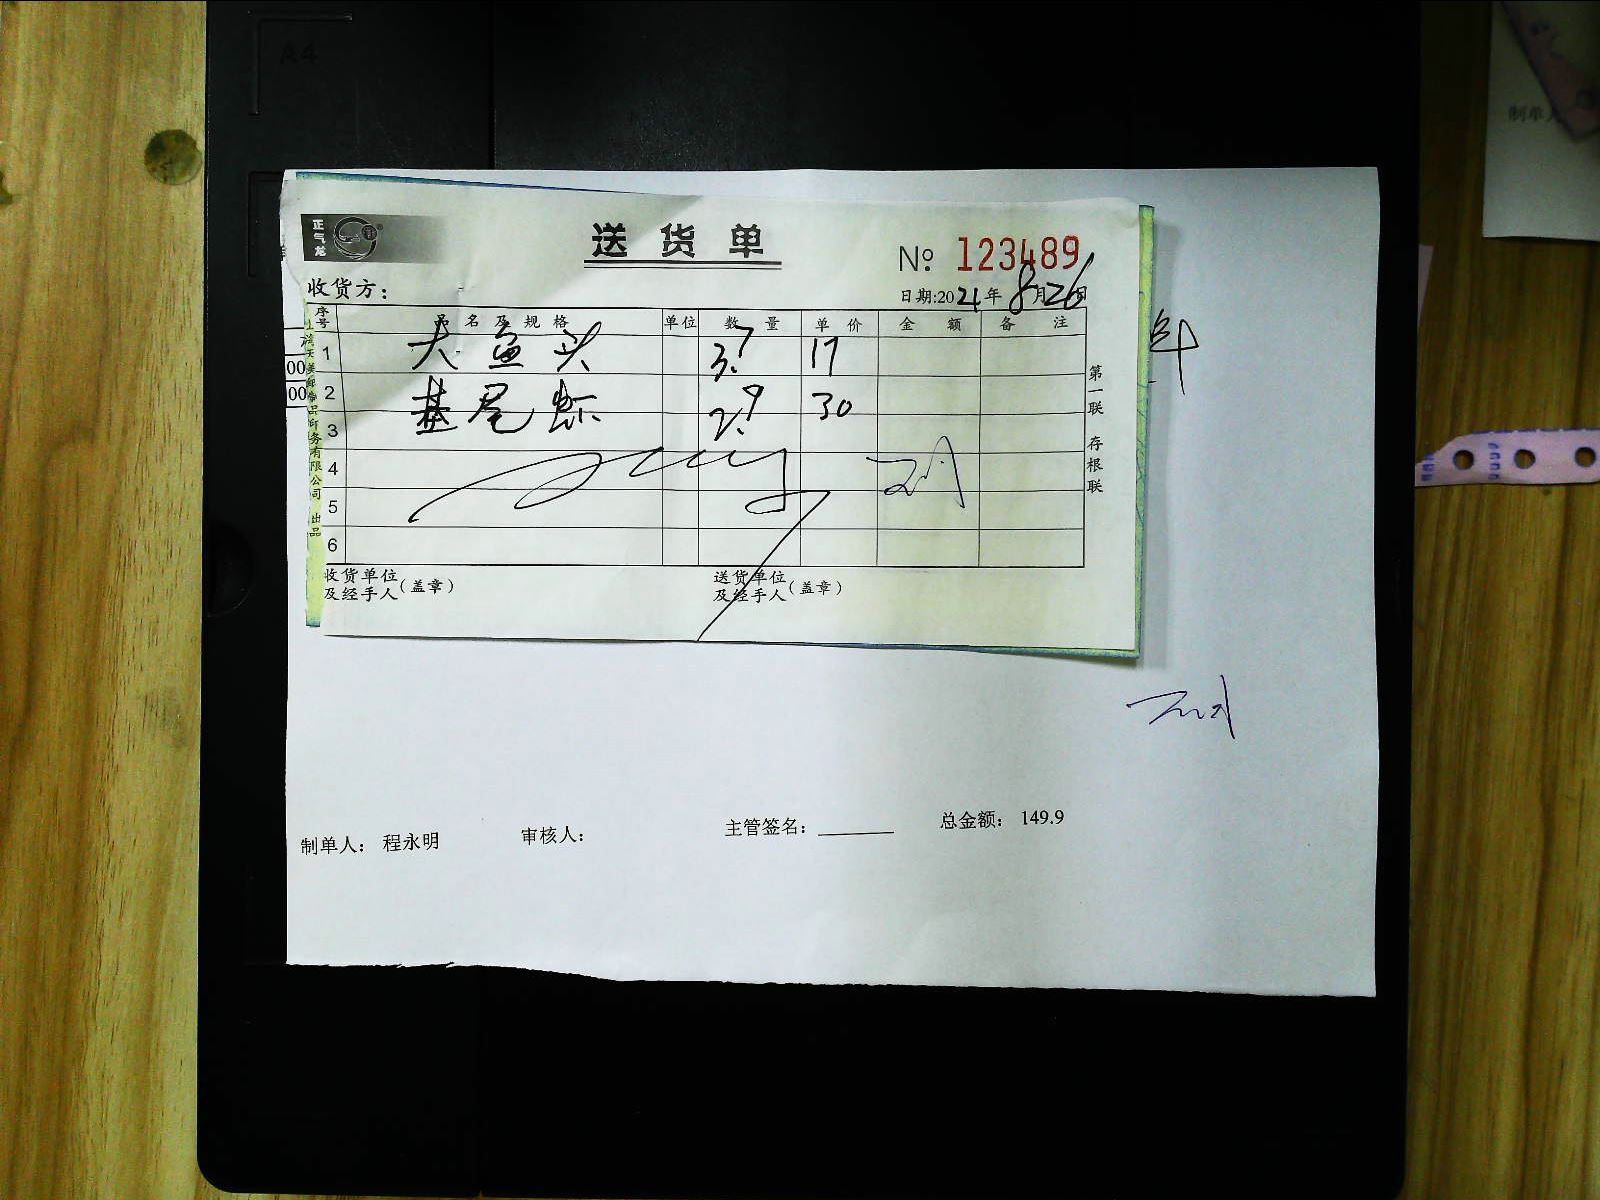 A4
制单人
正气龙
送货单
№ 123489
收货方：
日期:2021年8月26日
序号 品名及规格 单位 数量 单价 金额 备注
1 大鱼头 3.7 17
2 基尾虾 2.9 30
3
4
5
6
第一联 存根联
收货单位及经手人（盖章）
送货单位及经手人（盖章）
00
00
制单人： 程永明 审核人： 主管签名：________ 总金额： 149.9